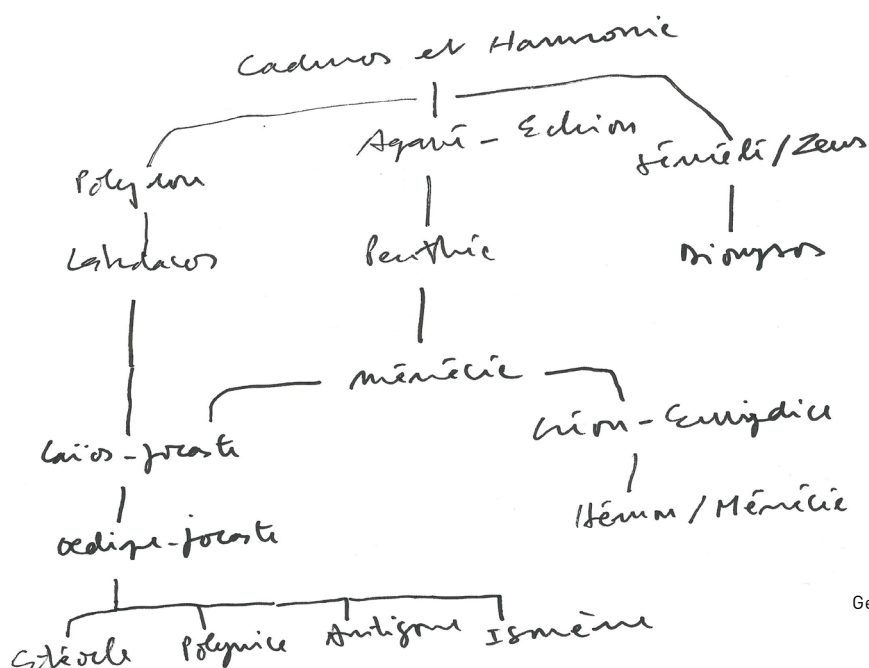 Cadmos et Harmonie
Agavé - Echion
Sémélé/Zeus
Polydore
Labdacos
Penthée
Dionysos
Ménécée
Laïos-Jocaste
Créon-Eurydice
Hémon/Ménécée
Oedipe-Jocaste
Etéocle Polynice Antigone Ismène
Ge